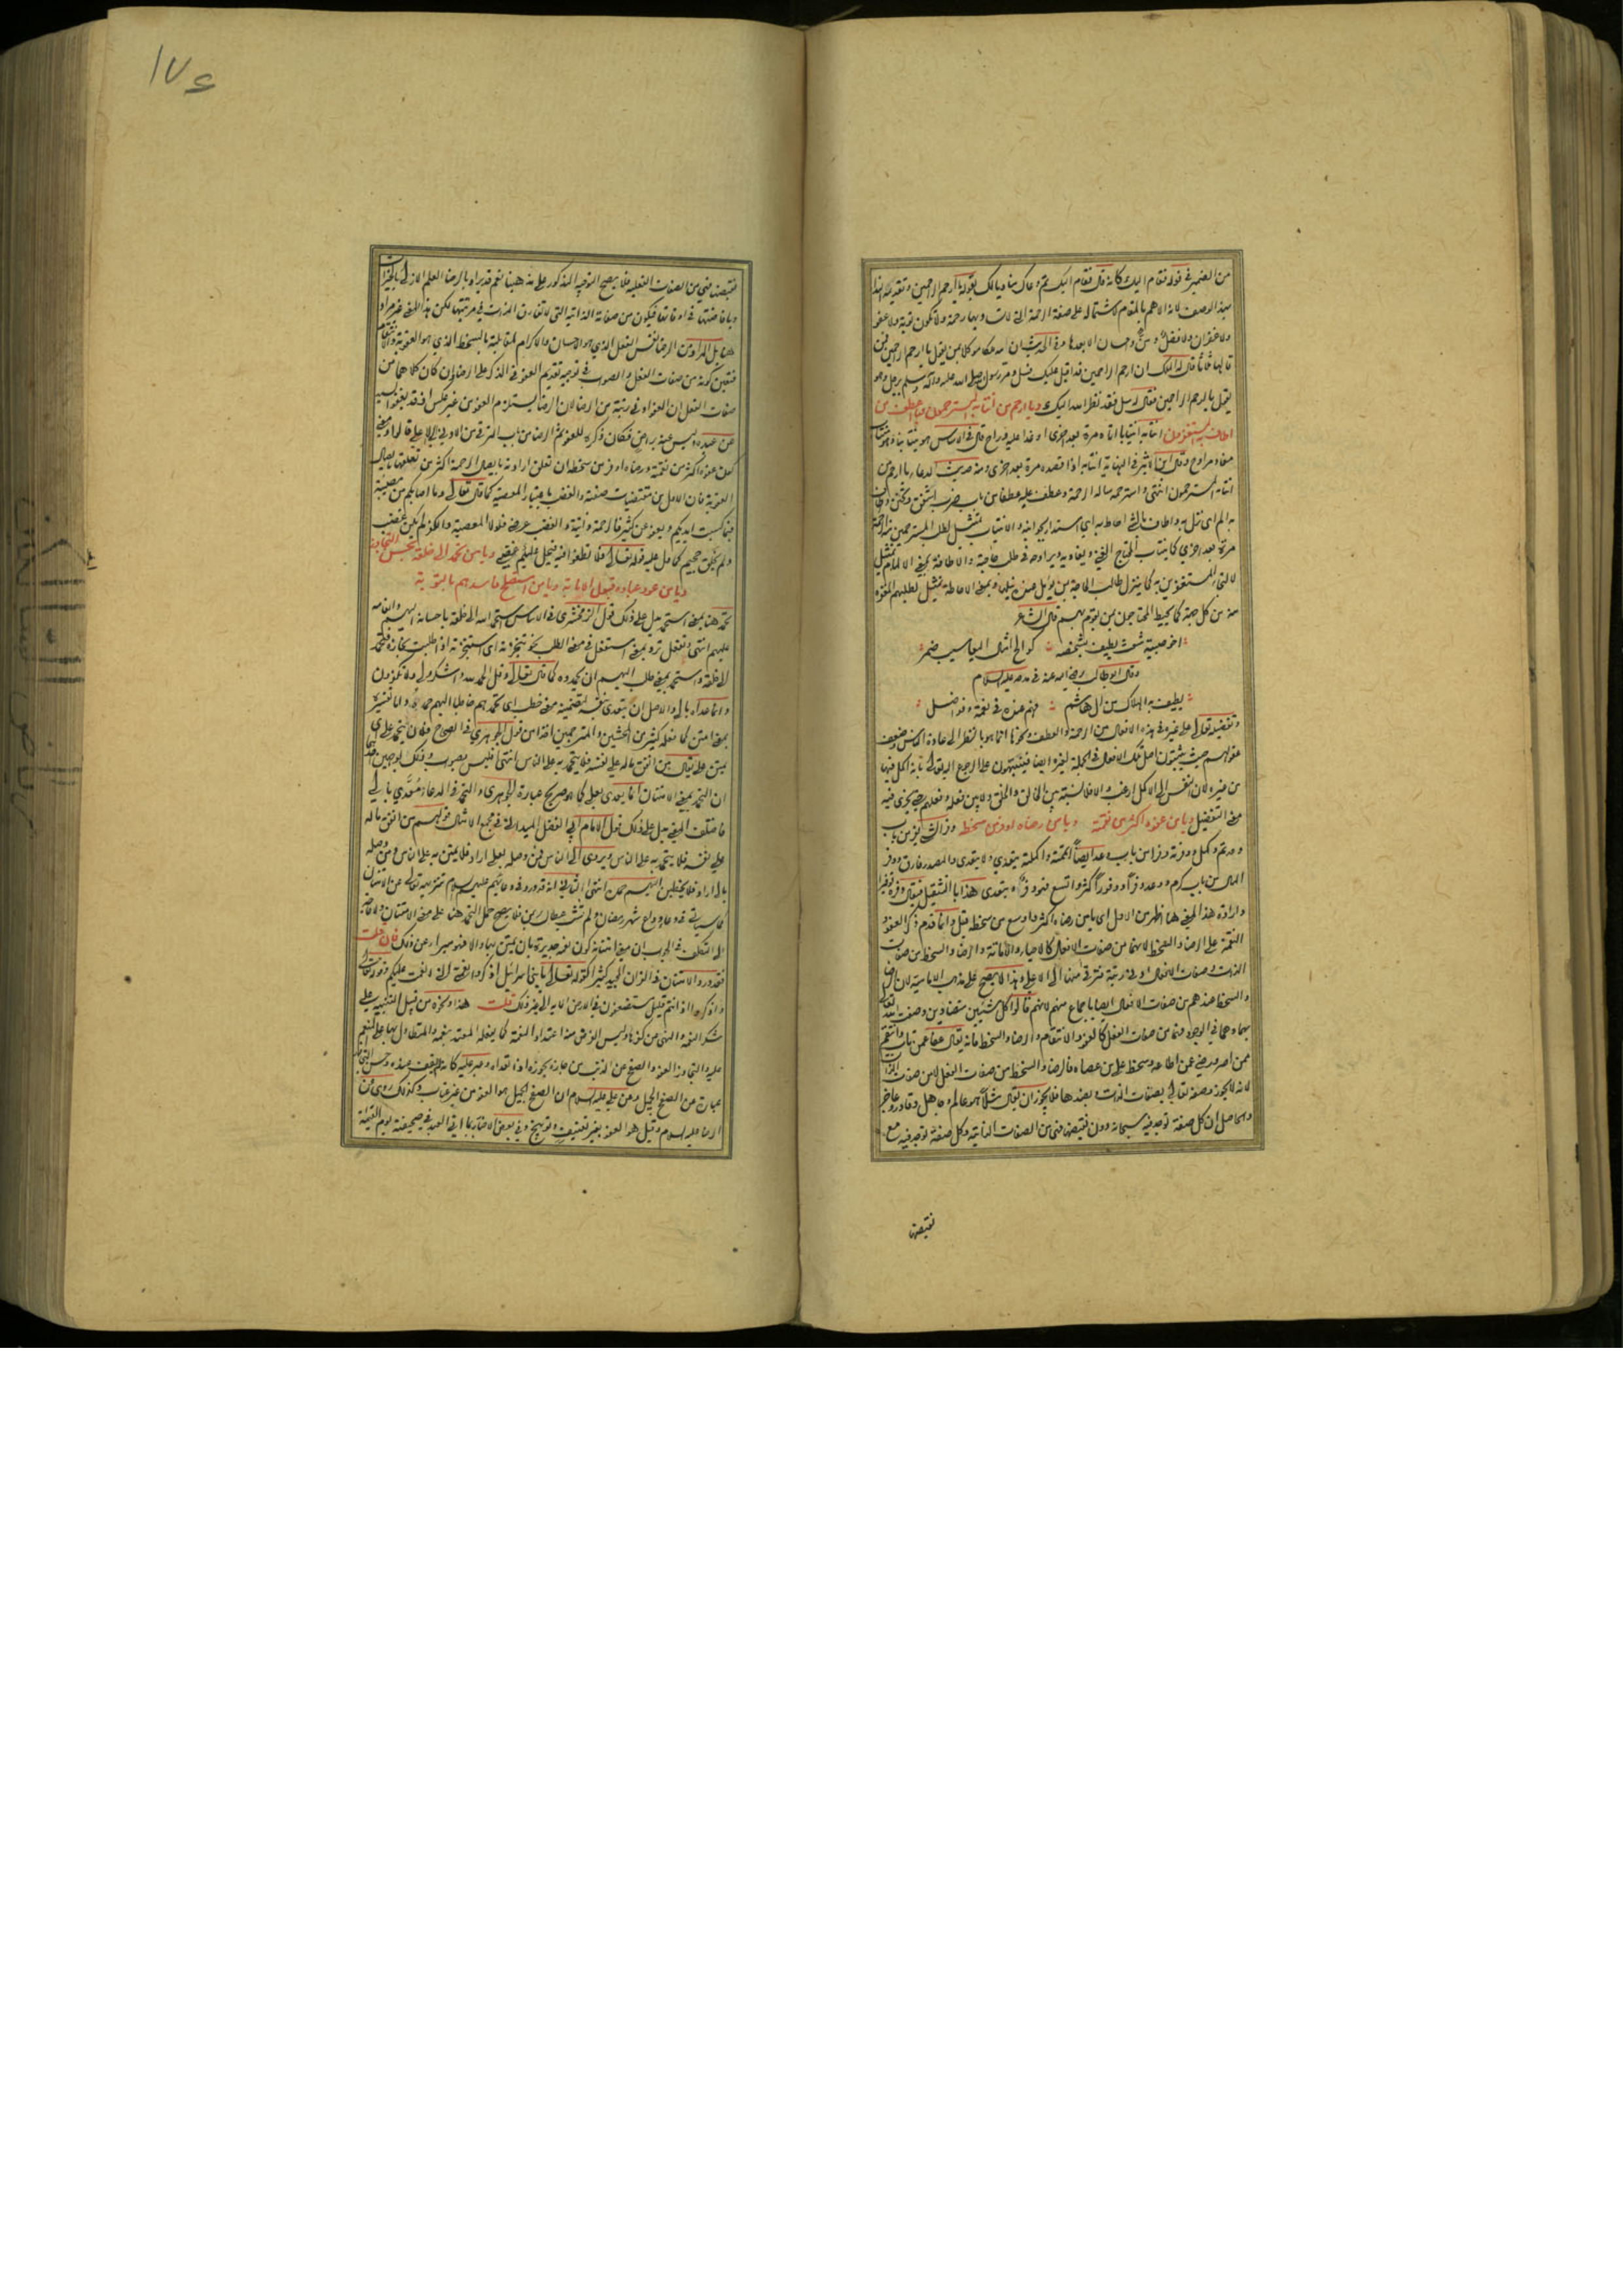 من الضمير في قوله فقام اليك كانه قال فقام اليك ثم دعاك مناديا لك بقوله يا ارحم الراحمين وتقديمه النداء
بهذا الوصف لانه الاهم بالمقام لاشتماله على صفة الرحمة التي لولاها رحمة ولا تكون توبة ولا عفو
ولا غفران ولا فضل
قالها ثلثا قال له الملك ان ارحم الراحمين قد اقبل عليك فسل ومر رسول الله صلى الله عليه وآله وسلم برجل وهو
يقول يا ارحم الراحمين فقال له سل فقد نظر الله اليك ويا ارحم من انتابه المسترحمون ويا اعطف من
اطاف به المستغفرون انتابه انتيابا اتاه مرة بعد اخرى
وقال ابن الاثير في النهاية انتابه اذا قصده مرة بعد اخرى ومنه حديث الدعاء يا ارحم من
انتابه المسترحمون انتهى واسترحمه ساله الرحمة وعطف عليه عطفا من باب ضرب اشفق وتحنن
به الم اي نزل به واطاف بالشي احاط به اي استدار بجوانبه والانتياب تمثيل لطلب المسترحمين منه الرحمة
مرة بعد اخرى كما ينتاب المحتاج الغني
لالتجاء المستغفرين به كما ينزل طالب الحاجة بمن يؤمل منه نيلها وبمعنى الاحاطة تمثيل لطلبهم المغفرة
منه من كل جهة كما يحيط المحتاجون بمن يقوم بهم قال الشاعر
اخو صبية شعث يطيف بشخصه كوالح امثال اليعاسيب ضمر
وقال ابو طالب رضي الله عنه في مدحه عليه السلام
يطيف به الهلاك من آل هاشم فهم عنده في نعمة وفواضل
وتفضيله تعالى على غيره في هذه الافعال من الرحمة والعطف ونحوها انما هو بالنظر الى عادة الناس وضعف
عقولهم حيث يثبتون اصل تلك الافعال في الجملة لغيره ايضا فينتبهون على الرجوع اليه تعالى بانه اكمل فيها
من غيره لان النفس الى الاكمل ارغب والا فلا نسبة بين الخالق والخلق ولا بين فعله وفعلهم حتى يجري فيه
معنى التفضيل ويا من عفوه اكثر من نقمته ويا من رضاه اوفر من سخطه وفر الشي يفر من باب
وعد تم وكمل ووفرته وفرا من باب وعد ايضا اتممته واكملته يتعدى ولا يتعدى والمصدر فارق ووفر
المال من باب كرم ووعد وفرا ووفورا كثر واتسع فهو وفر ويتعدى هذا بالتثقيل فيقال وفره توفيرا
وارادة هذا المعنى هنا اظهر من الاول اي يا من رضاه اكثر واوسع من سخطه قيل وانما قدم ذكر العفو و
النقمة على الرضا والسخط لانهما من صفات الافعال كالاحياء والاماتة والرضا والسخط من صفات
الذات وصفات الافعال ادنى رتبة فترقى منها الى الاعلى وهذا لا يصح على مذهب الامامية لان الرضا
والسخط عندهم من صفات الافعال ايضا باجماع منهم لانهم قالوا كل شيئين متضادين وصف الله تعالى
بهما وهما في الوجود فهما من صفات الفعل كالعفو والانتقام والرضا والسخط فانه يقال عفا عمن تاب وانتقم
ممن اصر ورضي عمن اطاعه وسخط على من عصاه فالرضا والسخط من صفات الفعل لا من صفات الذات
لانه لا يجوز وصفه تعالى بصفات الذات وبضدها فلا يجوز ان يقال مثلا هو عالم وجاهل وقادر وعاجز
والحاصل ان كل صفة توجد فيه سبحانه دون نقيضها فهي من الصفات الذاتية وكل صفة توجد فيه مع
نقيضها
١٧٤
نقيضها فهي من الصفات الفعلية فلا يصح التوجيه المذكور على مذهبنا نعم قد يراد بالرضا العلم الازلي بالخيرات
وبافاضتها في اوقاتها فيكون من صفاته الذاتية التي لا تفارق الذات في مرتبتها لكن هذا المعنى غير مراد
هنا بل المراد من الرضا نفس الفعل الذي هو الاحسان والاكرام لمقابلته بالسخط الذي هو العقوبة والانتقام
فتعين كونه من صفات الفعل والصواب في توجيه تقديم العفو في الذكر على الرضا وان كان كلاهما من
صفات الفعل ان العفو ادنى رتبة من الرضا لان الرضا يستلزم العفو من غير عكس اذ قد يعفو السيد
عن عبده وليس عنه براض فكان ذكره للعفو ثم الرضا من باب الترقي من الادنى الى الاعلى قالوا ومعنى
كون عفوه اكثر من نقمته ورضاه اوفر من سخطه ان تعلق ارادته بايصال الرحمة اكثر من تعلقها بايصال
العقوبة فان الاول من مقتضيات صفته والغضب باعتبار المعصية كما قال تعالى وما اصابكم من مصيبة
فبما كسبت ايديكم ويعفو عن كثير فالرحمة ذاتية والغضب عرضي فلولا المعصية والكفر لم يكن غضب
ولم يخلق جحيم كما دل عليه قوله تعالى ولا تطغوا فيه فيحل عليكم غضبي ويا من تحمد الى خلقه بحسن التجاوز
ويا من عود عباده قبول الانابة ويا من استصلح فاسدهم بالتوبة
تحمد هنا بمعنى استحمد يدل على ذلك قول الزمخشري في الاساس استحمد الله الى خلقه باحسانه اليهم وانعامه
عليهم انتهى وتفعل ترد بمعنى استفعل في معنى الطلب نحو تنجزته اي استنجزته اذا طلبت نجازه فتحمد
الى خلقه واستحمد بمعنى طلب اليهم ان يحمدوه كما قال تعالى وقل الحمد لله واشكروا لي ولا تكفرون
وانما عداه بالى والاصل ان يتعدى بنفسه لتضمينه معنى خطب اي تحمدهم خاطبا اليهم حمده واما تفسيره
بمعنى امتن كما فعله كثير من المحشين والمترجمين اخذا من قول الجوهري في الصحاح فلان يتحمد علي اي
يمتن علي يقال من انفق ماله على نفسه فلا يتحمد به على الناس انتهى فليس بصواب وذلك لوجهين احدهما
ان التحمد بمعنى الامتنان انما يعدى بعلى كما هو صريح عبارة الجوهري والتحمد في الدعاء معدى بالى
فاختلف المعنى يدل على ذلك قول الامام ابي الفضل الميداني في مجمع الامثال قولهم من انفق ماله
على نفسه فلا يتحمد به على الناس ويروى الى الناس فمن وصله بعلى اراد فلا يمتن به على الناس ومن وصله
بالى اراد فلا يخطبن اليهم حمده انتهى الثاني انه قد ورد في دعائهم عليهم السلام تنزيهه تعالى عن الامتنان
كما سياتي في دعاء وداع شهر رمضان ولم تشب عطاءك بمن فلا يصح حمل التحمد هنا على معنى الامتنان
فان قلت
فقد ورد الامتنان في القرآن المجيد كثيرا كقوله تعالى يا بني اسرائيل اذكروا نعمتي التي انعمت عليكم وقوله تعالى
واذكروا اذ انتم قليل مستضعفون في الارض الآية الى غير ذلك قلت هذا ونحوه من قبيل التنبيه على
شكر النعمة والنهي عن كفرها وليس الغرض منه اعتداد النعمة كما يفعله المعتد بنعمه والمتطاول بها على المنعم
عليه والتجاوز العفو والصفح عن الذنب من جازه يجوزه اذا تعداه وعبر عليه كانه لم يقف عنده وحسن التجاوز
عبارة عن الصفح الجميل وعن علي عليه السلام ان الصفح الجميل هو العفو من غير عتاب وكذلك روي عن
الرضا عليه السلام وقيل هو العفو بغير تعنيف وتوبيخ وفي بعض الاخبار يؤتى العبد في صحيفته يوم القيمة